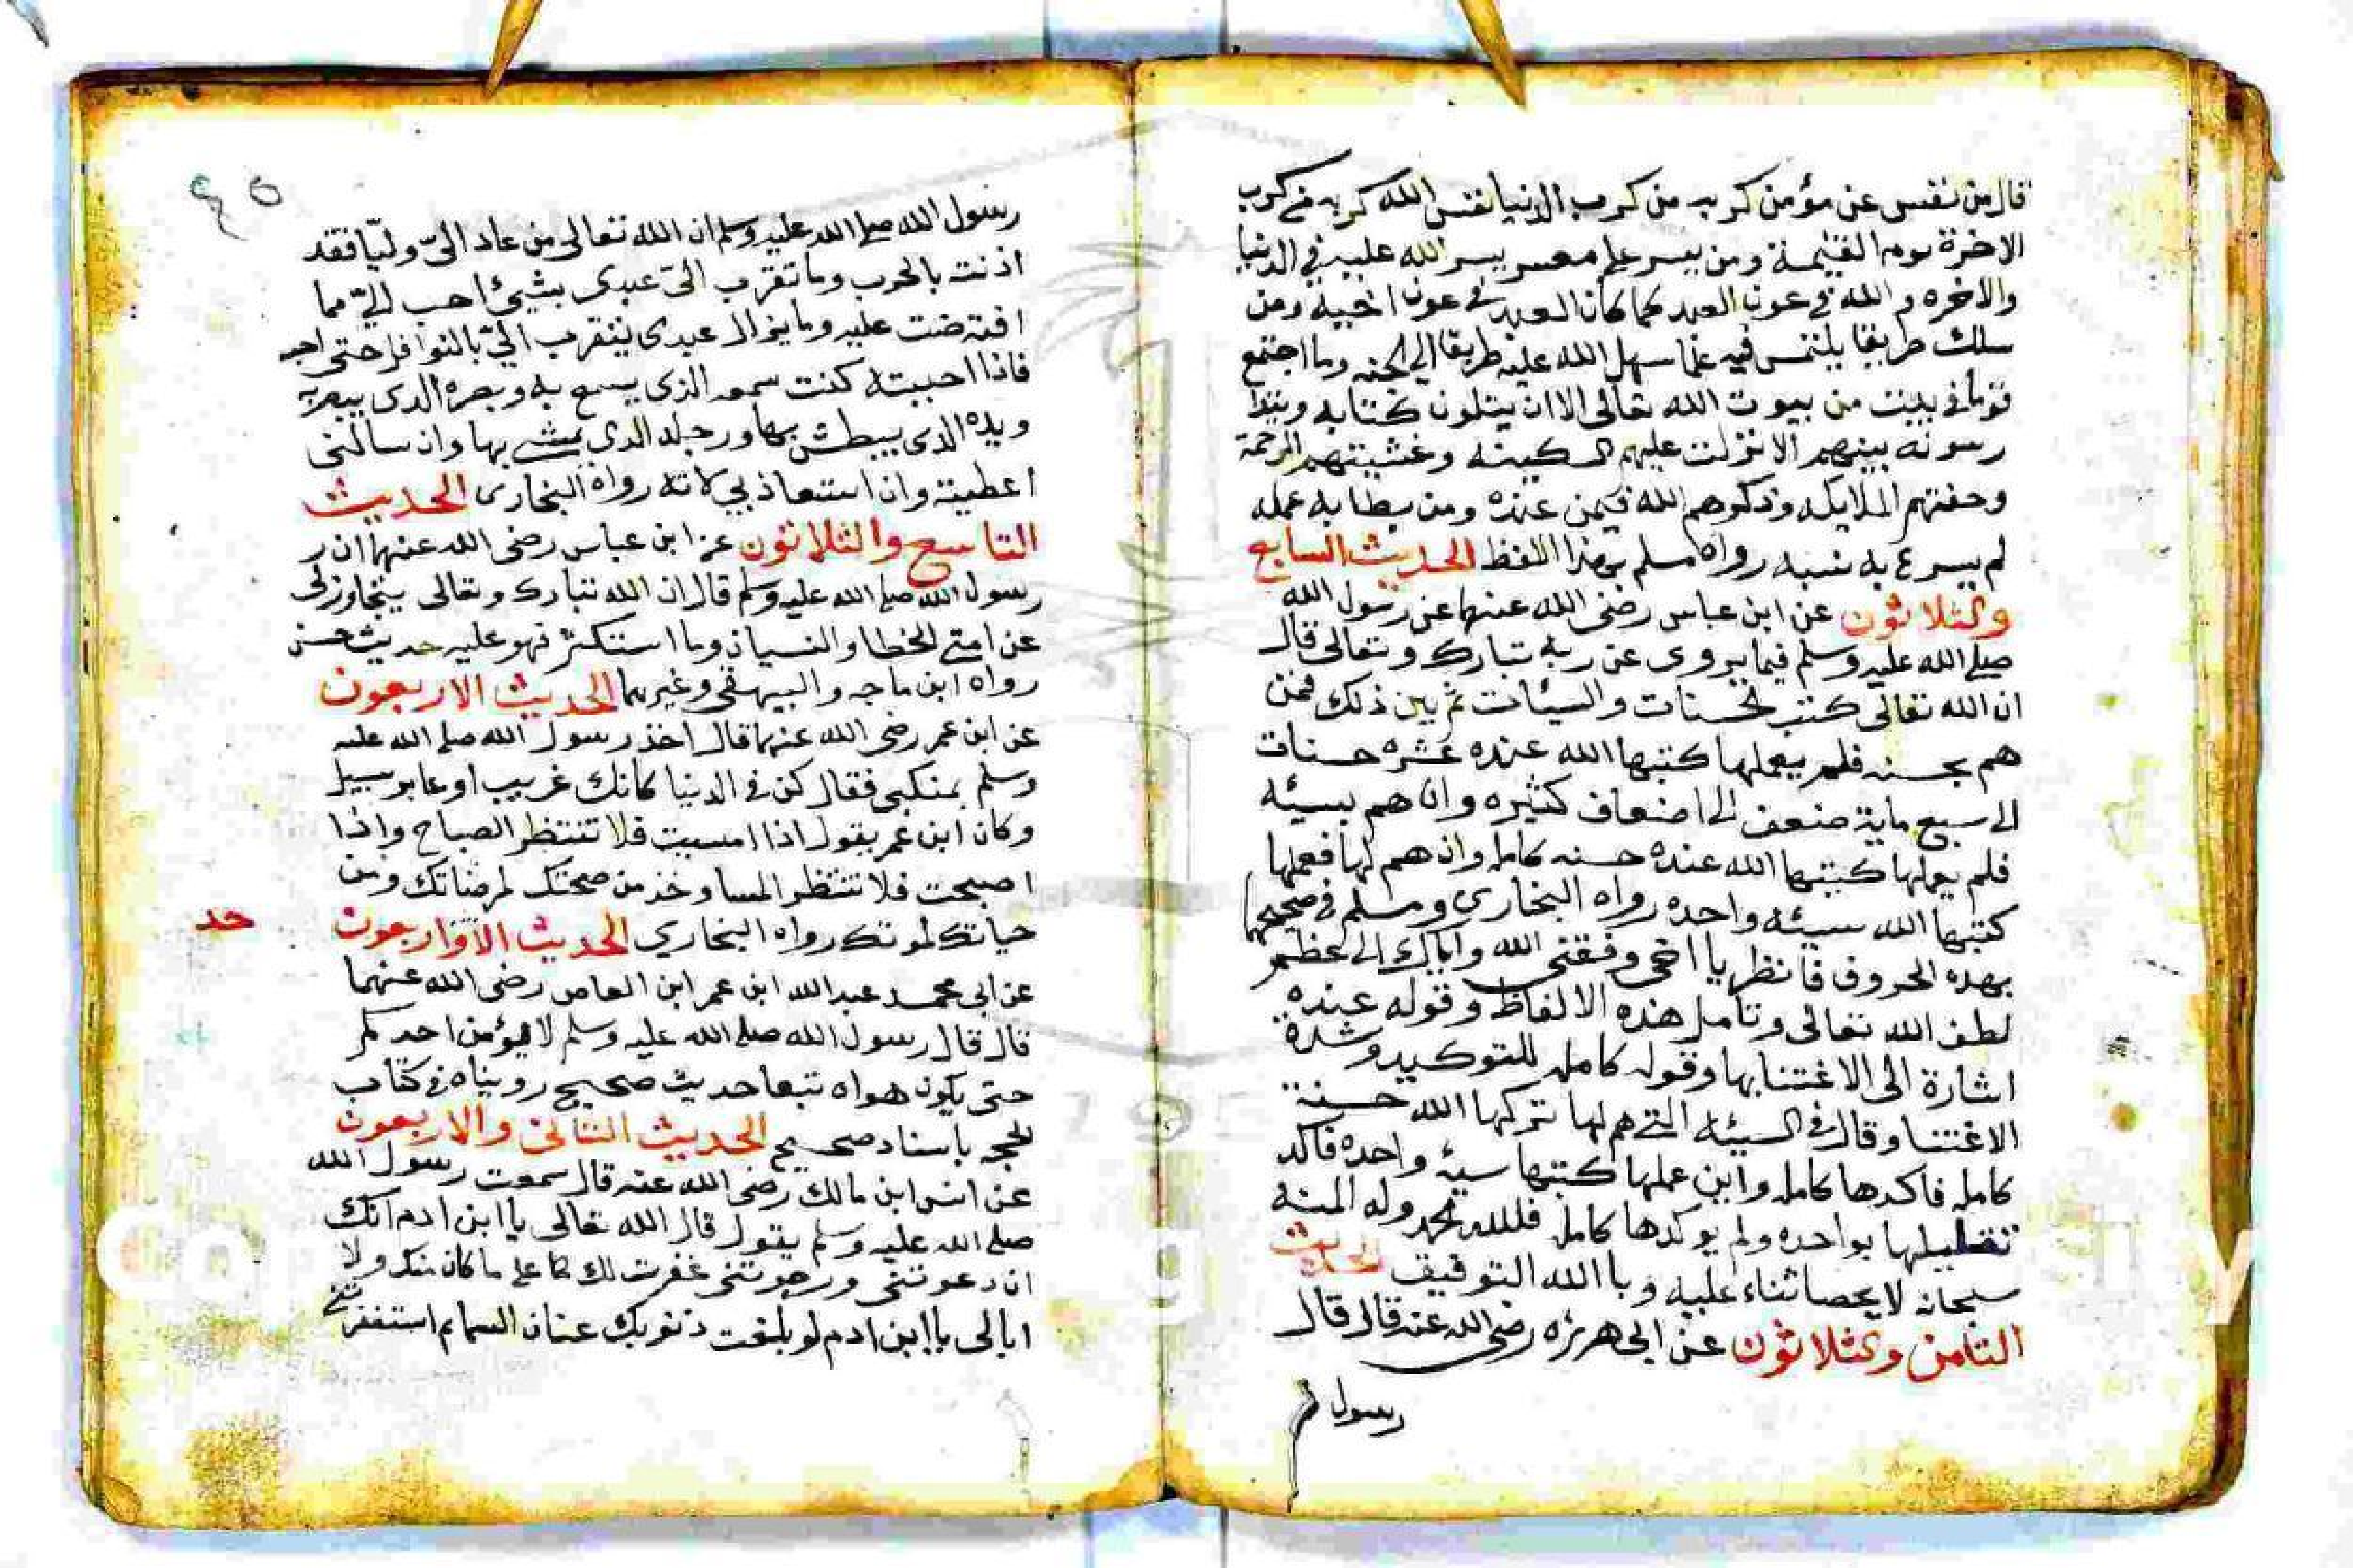 قال من نفس عن مؤمن كربه من كرب الدنيا نفس الله كربه من كرب
الاخرة يوم القيمة ومن يسر على معسر يسر الله عليه في الدنيا
والاخره والله في عون العبد كما كان العبد في عون اخيه ومن
سلك طريقا يلتمس فيه علما سهل الله عليه طريقا الى الجنه وما اجتمع
قوما في بيت من بيوت الله تعالى الا ان يتلون كتابه ويتدا
رسونه بينهم الا نزلت عليهم السكينه وغشيتهم الرحمة
وحفتهم الملايكه وذكرهم الله فيمن عنده ومن بطا به عمله
لم يسرع به نسبه رواه مسلم بهذا اللفظ الحديث السابع
والثلاثون عن ابن عباس رضى الله عنهما عن رسول الله
صلى الله عليه وسلم فيما يروى عن ربه تبارك وتعالى قال
ان الله تعالى كتب الحسنات والسيئات ثم بين ذلك فمن
هم بحسنه فلم يعملها كتبها الله عنده عشره حسنات
الى سبع ماية ضعف الى اضعاف كثيره وان هم بسيئه
فلم يعملها كتبها الله عنده حسنه كامله وان هم لها فعملها
كتبها الله سيئه واحده رواه البخاري ومسلم في صحيحيهما
بهده الحروف فانظر يا اخى وفقنى الله واياك الى عظيم
لطف الله تعالى وتامل هذه الالفاظ وقوله عنده
اشارة الى الاغتنا بها وقوله كامله للتوكيد وشدة
الاغتنا وقال في السيئه التي هم لها تركها الله حسنة
كامله فاكدها كامله واين عملها كتبها سيئه واحده فاكد
تقليلها بواحده ولم يوكدها كامله فلله الحمد وله المنه
سبحانه لا يحصا ثناء عليه وبا الله التوفيق الحديث
الثامن والثلاثون عن ابى هريره رضى الله عنه قال قال
رسول
رسول الله صلى الله عليه وسلم ان الله تعالى من عاد الىّ وليّا فقد
اذنته بالحرب وما تقرب الىّ عبدى بشيئ احب اليّ مما
افترضت عليه وما يزال عبدى يتقرب اليّ بالنوافل حتى احبه
فاذا احببته كنت سمعه الذى يسمع به وبصره الدى يبصر به
ويده الدى يبطش بها ورجله الدى يمشى بها وان سالنى
اعطيته وان استعاذ بي لاته رواه البخارى الحديث
التاسع والثلاثون عن ابن عباس رضى الله عنهما ان ر
رسول الله صلى الله عليه وسلم قال ان الله تبارك وتعالى يتجاوز لى
عن امتي الخطا والنسيان وما استكثر فهو عليه حديث حسن
رواه ابن ماجه والبيهقي وغيرهما الحديث الاربعون
عن ابن عمر رضى الله عنهما قال اخذ رسول الله صلى الله عليه
وسلم بمنكبى فقال كن في الدنيا كانك غريب او عابر سبيل
وكان ابن عمر يقول اذا امسيت فلا تنتظر الصباح واذا
اصبحت فلا تنتظر المسا وخذ من صحتك لمرضاتك ومن
حياتك لموتك رواه البخاري الحديث الاواربعون
حد
عن ابى محمد عبد الله ابن عمر ابن العاص رضى الله عنهما
قال قال رسول الله صلى الله عليه وسلم لا يؤمن احدكم
حتى يكون هواه تبعا حديث صحيح رويناه في كتاب
الحجه باسناد صحيح الحديث الثانى والاربعون
عن انس ابن مالك رضى الله عنه قال سمعت رسول الله
صلى الله عليه وسلم يقول قال الله تعالى يا ابن ادم انك
ان دعوتنى ورجوتنى غفرت لك كا على ما كان منك ولا
ابالى يا ابن ادم لو بلغت دنوبك عنان السما ثم استغفرتنى